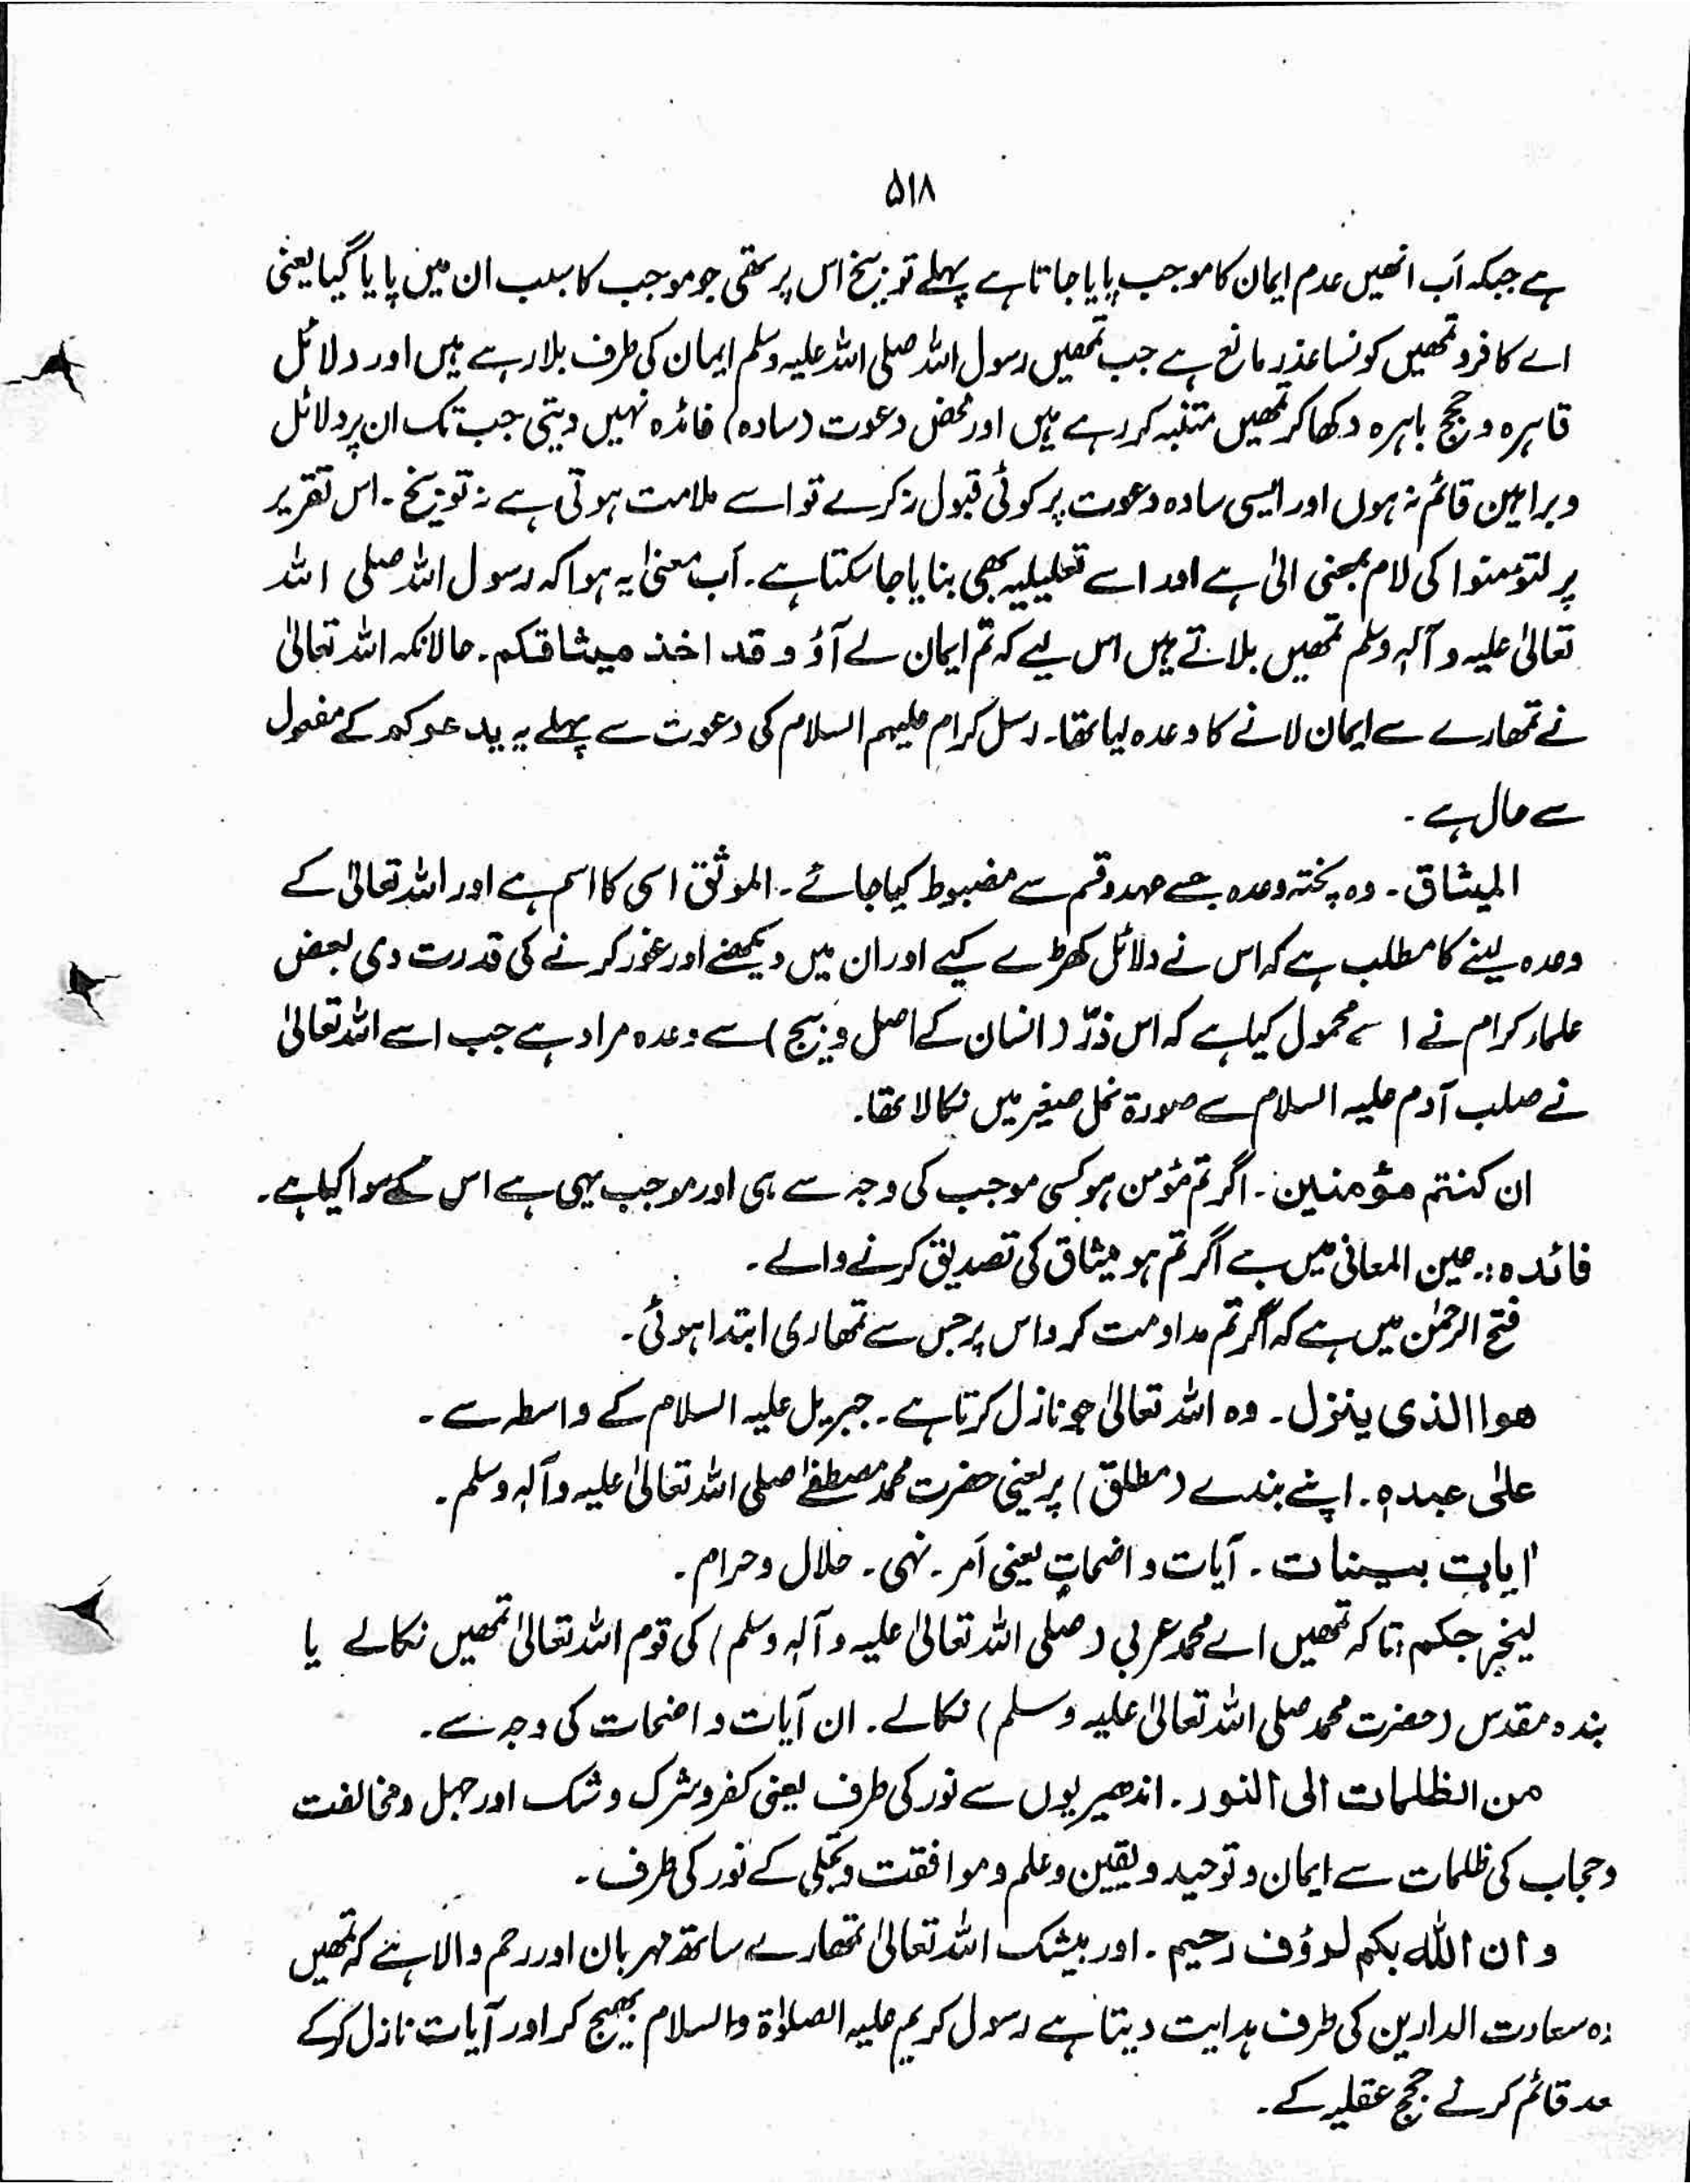 ۵۱۸
ہے جبکہ اَب انھیں عدم ایمان کا موجب پایا جاتا ہے پہلے توزیخ اس پر تھی جو موجب کا سبب ان میں پایا گیا یعنی
اے کافرو تمھیں کونسا عذر مانع ہے جب تمھیں رسول اللہ صلی اللہ علیہ وسلم ایمان کی طرف بلا رہے ہیں اور دلائل
قاہرہ و حجج باہرہ دکھا کر تمھیں متنبہ کر رہے ہیں اور محض دعوت (سادہ) فائدہ نہیں دیتی جب تک ان پر دلائل
و براہین قائم نہ ہوں اور ایسی سادہ دعوت پر کوئی قبول نہ کرے تو اسے ملامت ہوتی ہے نہ توزیخ ۔ اس تقریر
پر لتؤمنوا کی لام بمعنی الیٰ ہے اور اسے تعلیلیہ بھی بنایا جا سکتا ہے ۔ اَب معنیٰ یہ ہوا کہ رسول اللہ صلی اللہ
تعالیٰ علیہ و آلہٖ وسلم تمھیں بلاتے ہیں اس لیے کہ تم ایمان لے آؤ و قد اخذ میثاقکم ۔ حالانکہ اللہ تعالیٰ
نے تمھارے سے ایمان لانے کا وعدہ لیا تھا ۔ رسل کرام علیہم السلام کی دعوت سے پہلے یہ یدعوکم کے مفعول
سے حال ہے ۔
المیثاق ۔ وہ پختہ وعدہ جسے عہد و قسم سے مضبوط کیا جائے ۔ الموثق اسی کا اسم ہے اور اللہ تعالیٰ کے
وعدہ لینے کا مطلب ہے کہ اس نے دلائل کھڑے کیے اور ان میں دیکھنے اور غور کرنے کی قدرت دی بعض
علماء کرام نے اسے محمول کیا ہے کہ اس ذرّ (انسان کے اصل و بیج) سے وعدہ مراد ہے جب اسے اللہ تعالیٰ
نے صلب آدم علیہ السلام سے صورۃ نمل صغیر میں نکالا تھا ۔
ان کنتم مؤمنین ۔ اگر تم مؤمن ہو کسی موجب کی وجہ سے ہی اور موجب یہی ہے اس کے سوا کیا ہے ۔
فائدہ :۔ عین المعانی میں ہے اگر تم ہو میثاق کی تصدیق کرنے والے ۔
فتح الرحمٰن میں ہے کہ اگر تم مداومت کرو اس پر جس سے تمھاری ابتدا ہوئی ۔
ھو االذی ینزل ۔ وہ اللہ تعالیٰ جو نازل کرتا ہے ۔ جبریل علیہ السلام کے واسطہ سے ۔
علٰی عبدہٖ ۔ اپنے بندے (مطلق) پر یعنی حضرت محمد مصطفےٰ صلی اللہ تعالیٰ علیہ و آلہٖ وسلم ۔
اٰیاتٍ بینات ۔ آیات واضحات یعنی اَمر ۔ نہی ۔ حلال و حرام ۔
لیخرجکم : تاکہ تمھیں اے محمد عربی (صلی اللہ تعالیٰ علیہ و آلہٖ وسلم) کی قوم اللہ تعالیٰ تمھیں نکالے یا
بندہ مقدس (حضرت محمد صلی اللہ تعالیٰ علیہ وسلم) نکالے ۔ ان آیات واضحات کی وجہ سے ۔
من الظلمات الی النور ۔ اندھیریوں سے نور کی طرف یعنی کفر و شرک و شک اور جہل و مخالفت
و حجاب کی ظلمات سے ایمان و توحید و یقین و علم و موافقت و تجلی کے نور کی طرف ۔
و ان اللّٰہ بکم لرؤف رحیم ۔ اور بیشک اللہ تعالیٰ تمھارے ساتھ مہربان اور رحم والا ہے کہ تمھیں
وہ سعادت الدارین کی طرف ہدایت دیتا ہے رسول کریم علیہ الصلوٰۃ والسلام بھیج کر اور آیات نازل کر کے
قائم کرنے حجج عقلیہ کے ۔